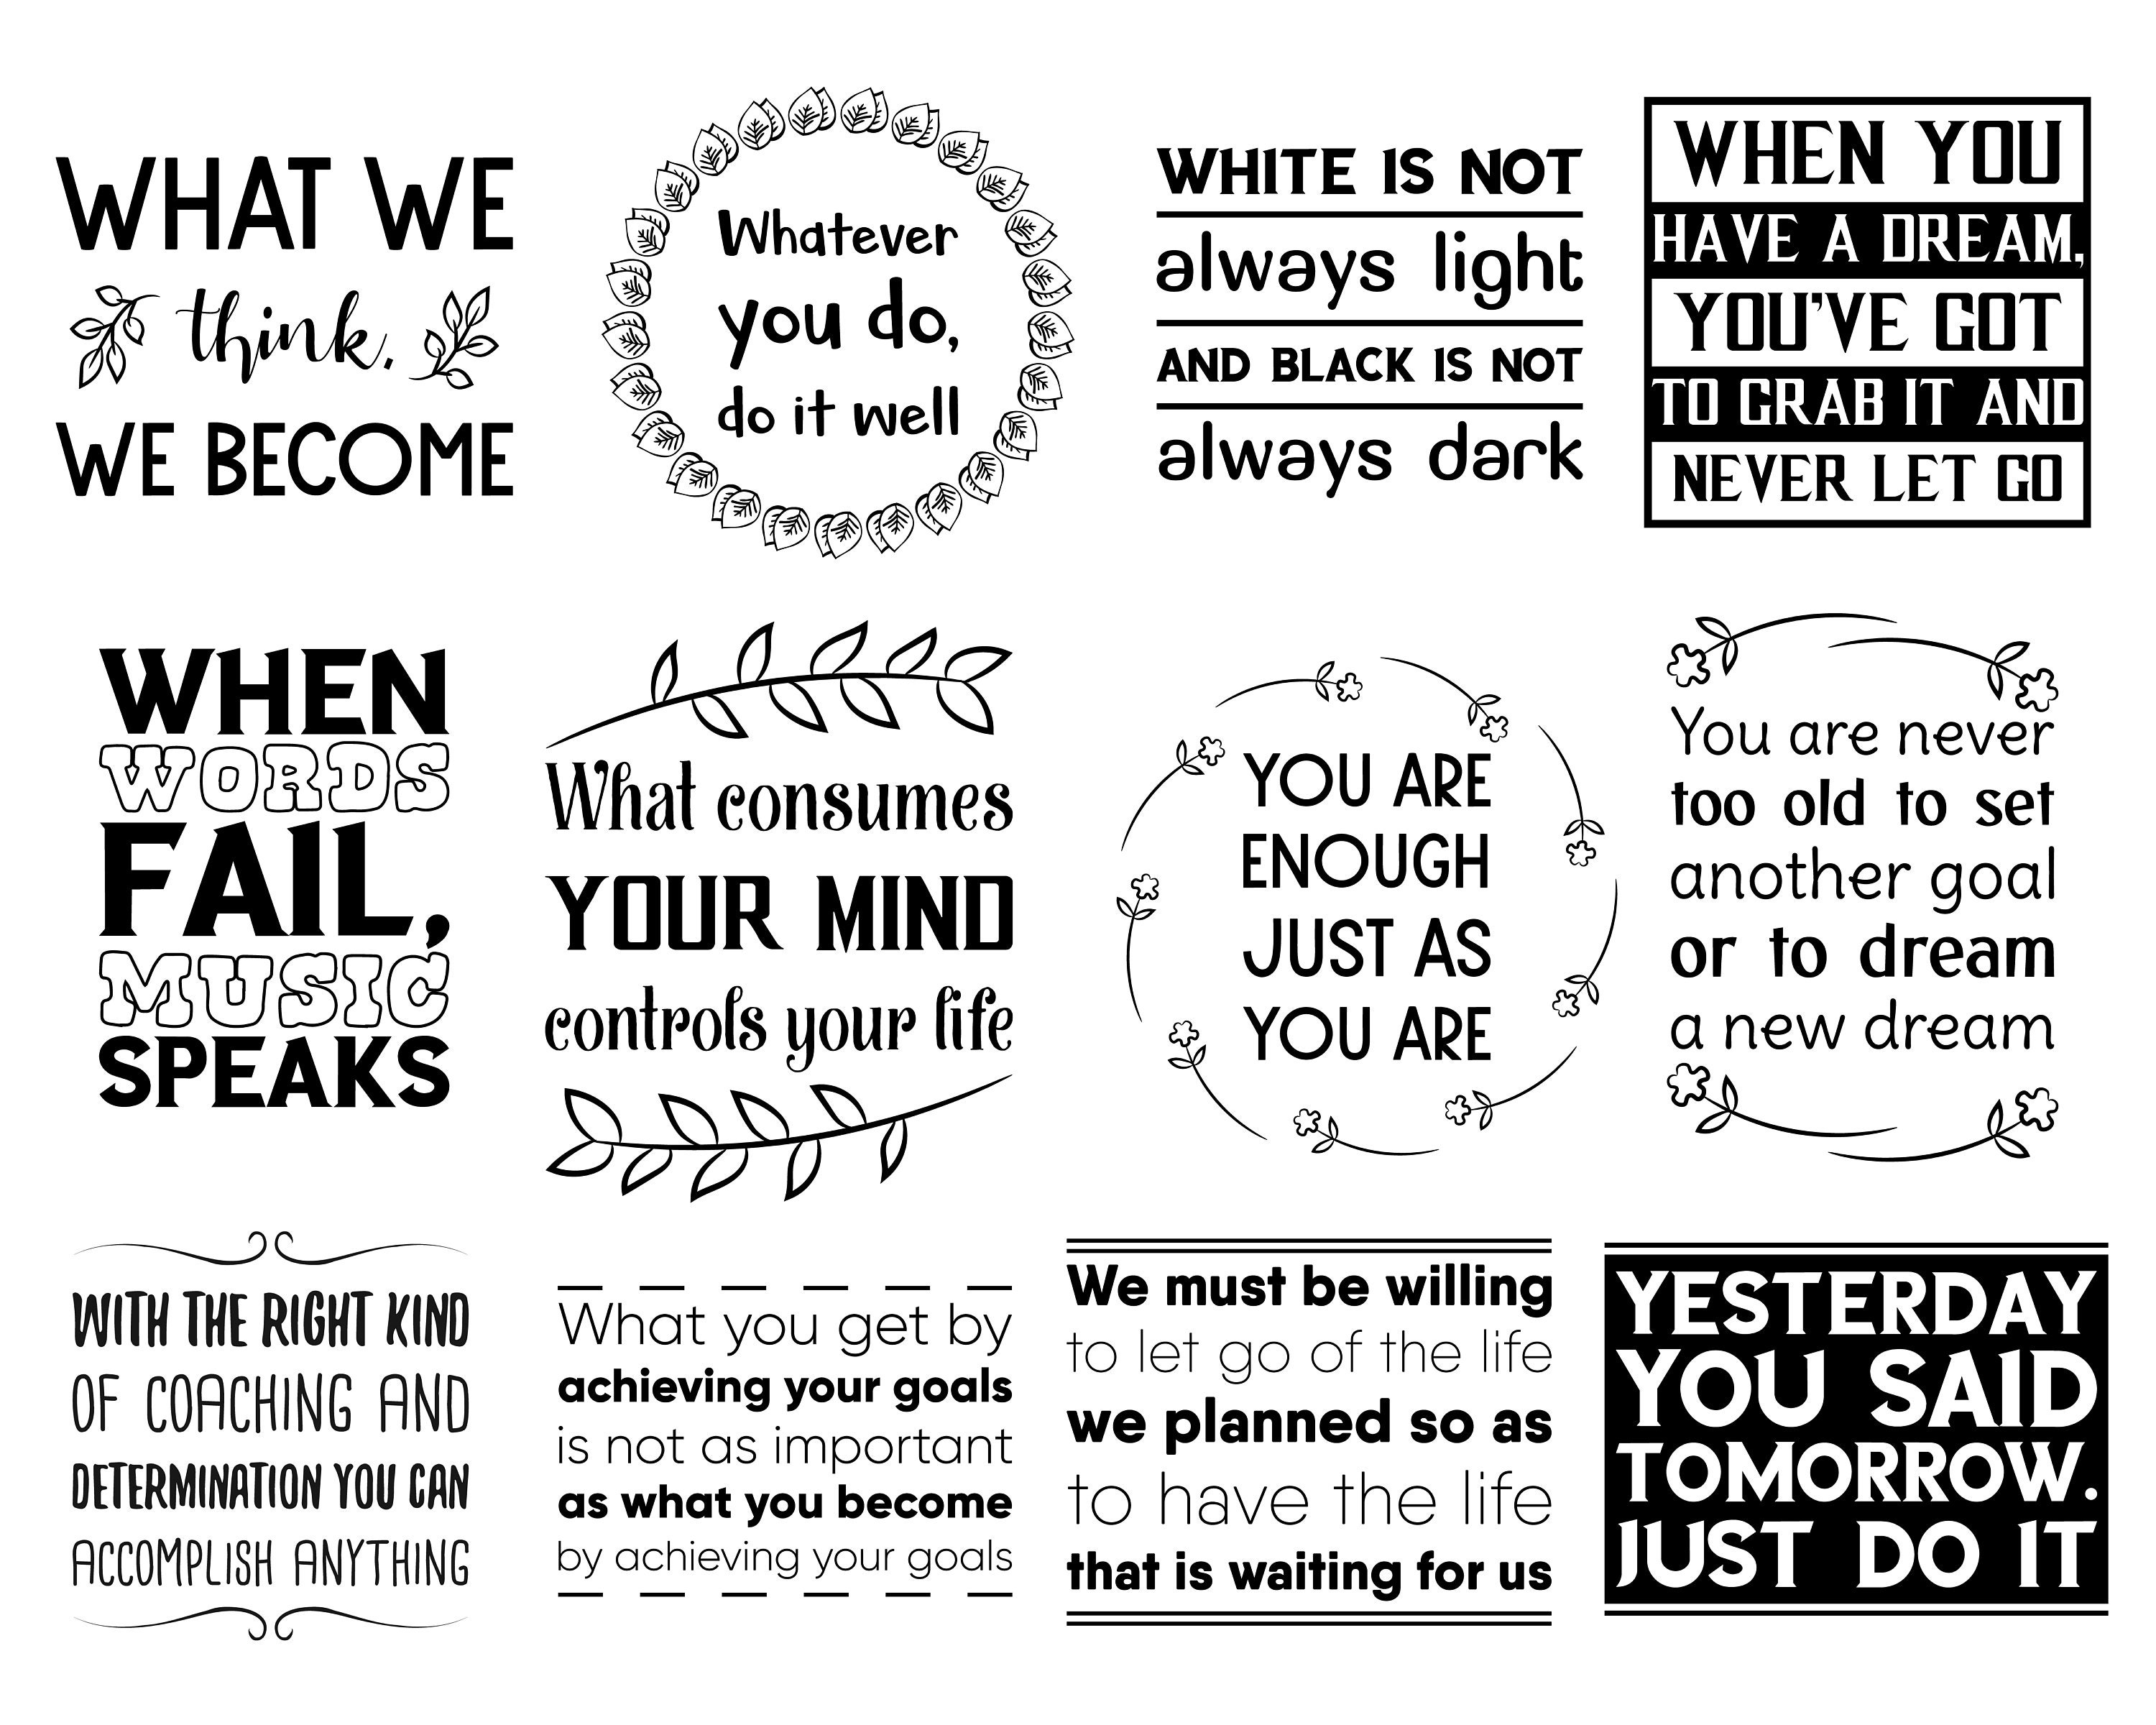 WHAT WE
think,
WE BECOME
Whatever
you do,
do it well
WHITE IS NOT
always light
AND BLACK IS NOT
always dark
WHEN YOU
HAVE A DREAM,
YOU'VE GOT
TO GRAB IT AND
NEVER LET GO
WHEN
WORDS
FAIL,
MUSIC
SPEAKS
What consumes
YOUR MIND
controls your life
YOU ARE
ENOUGH
JUST AS
YOU ARE
You are never
too old to set
another goal
or to dream
a new dream
WITH THE RIGHT KIND
OF COACHING AND
DETERMINATION YOU CAN
ACCOMPLISH ANYTHING
What you get by
achieving your goals
is not as important
as what you become
by achieving your goals
We must be willing
to let go of the life
we planned so as
to have the life
that is waiting for us
YESTERDAY
YOU SAID
TOMORROW.
JUST DO IT